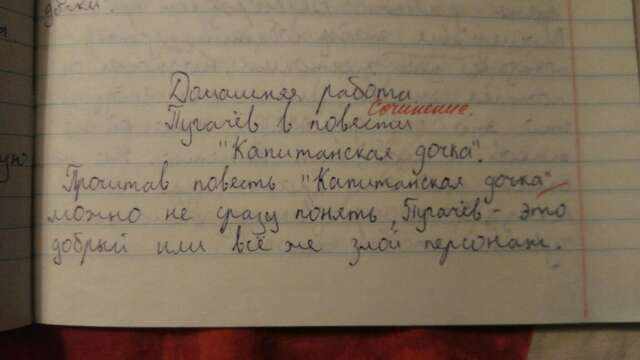 дочки.
Домашняя работа
Сочинение.
Пугачёв в повести
"Капитанская дочка".
Прочитав повесть "Капитанская дочка"
можно не сразу понять, Пугачёв - это
добрый или всё же злой персонаж.